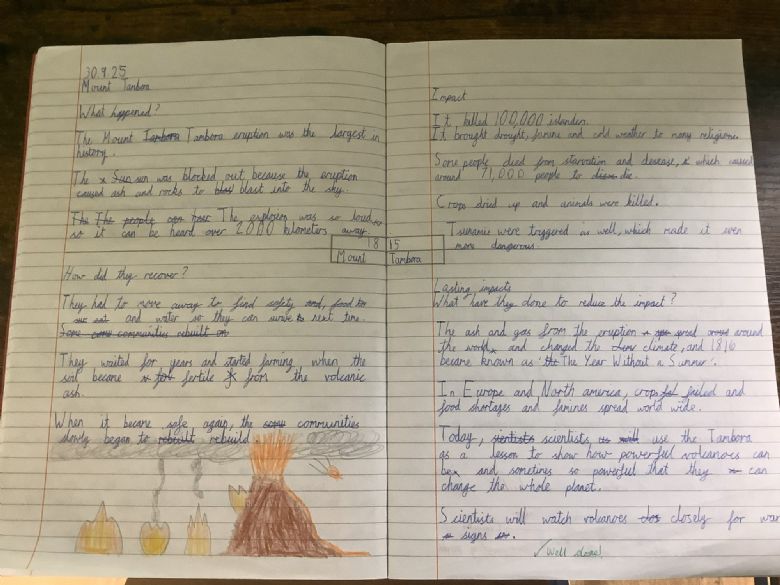 30.9.25
Mount Tanbora
What happened?
The Mount Tambora Tambora eruption was the largest in
history.
The Sun sun was blocked out, because the eruption
caused ash and rocks to blast into the sky.
The The people The explosion was so loud
so it can be heard over 2000 kilometers away.
18 15
Mount Tambora
How did they recover?
They had to move away to find safety and, food to
eat and water so they can survive next time.
Some communities rebuilt on
They waited for years and started farming when the
soil became fertile from the volcanic
ash.
When it became safe again, the communities
slowly began to rebuilt rebuild
Impact
It killed 100,000 islanders.
It brought drought, famine and cold weather to many religions.
Some people died from starvation and desease, which caused
around 71,000 people to die.
Crops dried up and animals were killed.
Tsunamis were triggered as well, which made it even
more dangerous.
Lasting impacts
What have they done to reduce the impact?
The ash and gas from the eruption spread around
the world and changed the climate, and 1816
became known as 'the The Year Without a Summer'.
In Europe and North america, crops failed and
food shortages and famines spread world wide.
Today, scientists use the Tambora
as a lesson to show how powerful volcanoes can
be and sometimes so powerful that they can
change the whole planet.
Scientists will watch volcanoes closely for war
signs
✓ Well done!